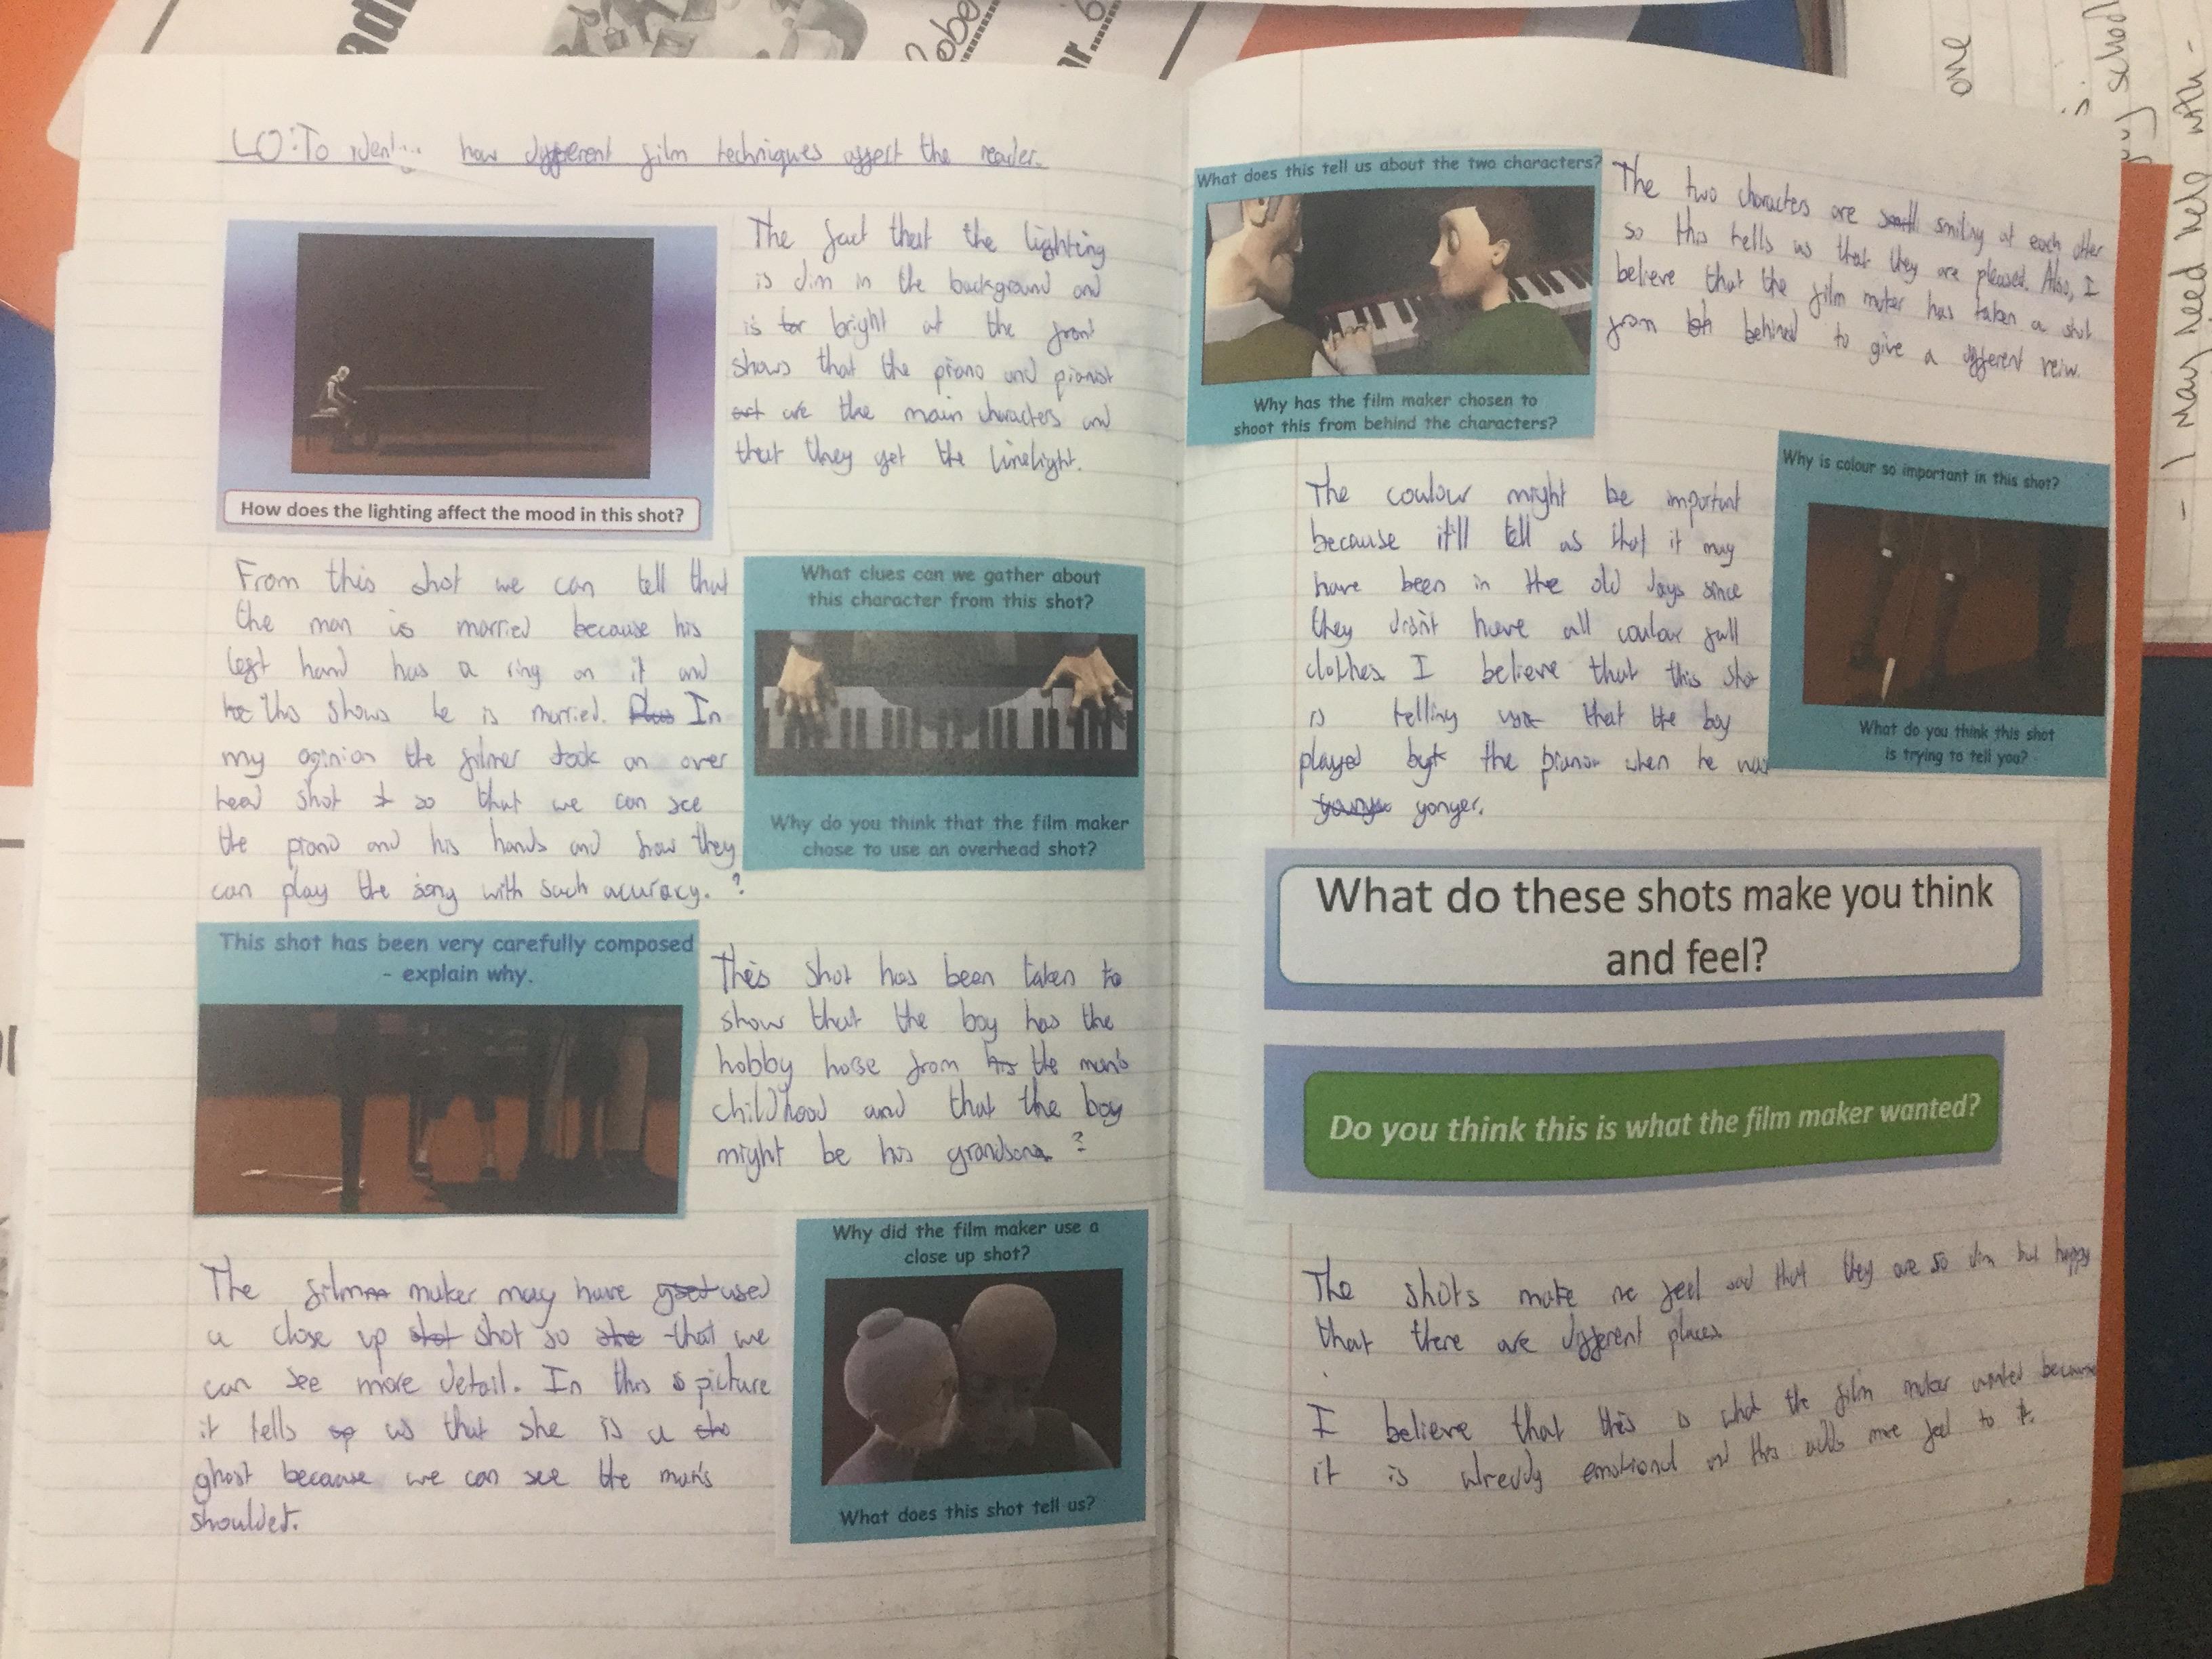 LO: To how different film techniques affect the reader.
The fact that the lighting
is dim in the background and
is for bright at the front
shows that the piano and pianist
are the main characters and
that they get the limelight.
How does the lighting affect the mood in this shot?
From this shot we can tell that
the man is married because his
left hand has a ring on it and
this shows he is married. Plus In
my opinion the filmer took an over
head shot so that we can see
the piano and his hands and how they
can play the song with such acuracy. ?
What clues can we gather about
this character from this shot?
Why do you think that the film maker
chose to use an overhead shot?
This shot has been very carefully composed
- explain why.
This shot has been taken to
show that the boy has the
hobby horse from his the man's
childhood and that the boy
might be his grandson ?
The film maker may have used
a close up shot shot so that we
can see more detail. In this picture
it tells us that she is a
ghost because we can see the man's
shoulder.
Why did the film maker use a
close up shot?
What does this shot tell us?
What does this tell us about the two characters?
Why has the film maker chosen to
shoot this from behind the characters?
The two characters are smiling at each other
so this tells us that they are pleased. Also, I
believe that the film maker has taken a shot
from behind to give a different veiw.
The coulour might be important
because it'll tell us that it may
have been in the old days since
they didn't have all coulour full
clothes. I believe that this shot
is telling that the boy
played the piano when he was
yonger.
Why is colour so important in this shot?
What do you think this shot
is trying to tell you?
What do these shots make you think
and feel?
Do you think this is what the film maker wanted?
The shots make me feel sad that they are so dim but happy
that there are different places.
I believe that this is what the film maker wanted because
it is already emotional and this adds more feel to it.
one
school
- I may need help with -